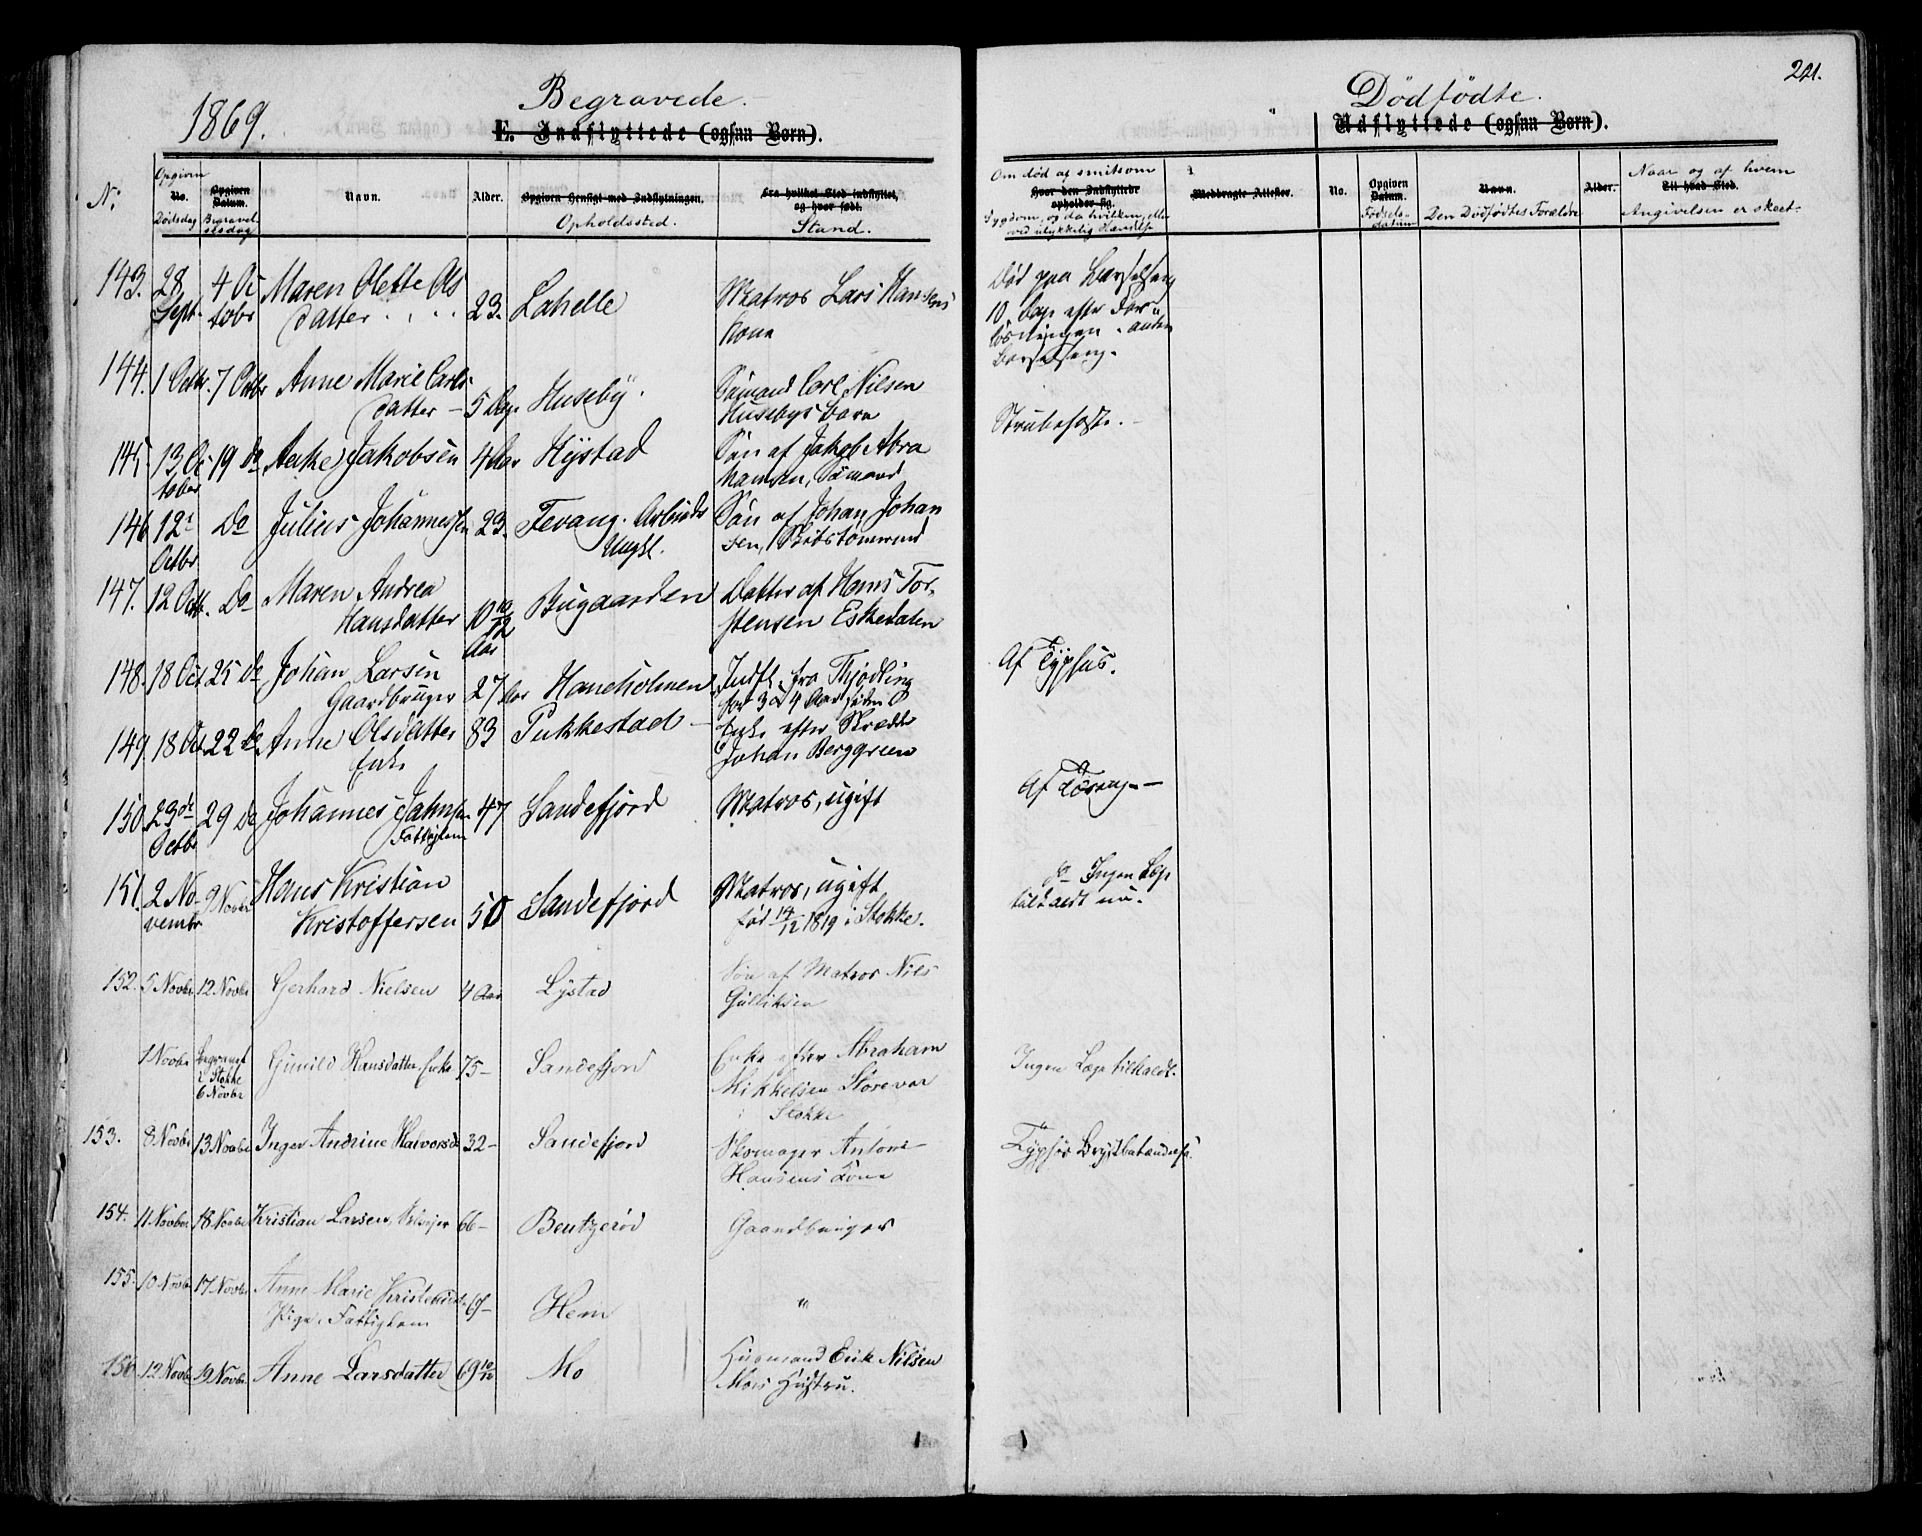 1869.
Begravede.
E. Indflyttede (ogsaa Børn).
Dødfødte.
221.
Udflyttede (ogsaa Børn).
No:
Opgiven
No.
Dødsdag
Opgiven Datum.
Begravelsesdag
Navn.
Alder.
Opgiven Hensigt med Indflytningen.
Opholdssted.
Fra hvilket Sted indflyttet, og hvor født.
Stand.
Om død af smitsom
Hvor den Indflyttede opholder sig.
Sygdom, og da hvilken, eller
ved ulykkelig Hændelse
Medbragte Attester.
No.
Opgiven Datum.
Fødselsdatum
Navn.
Den Dødfødtes Forældre
Alder.
Naar og af hvem
Til hvad Sted.
Angivelsen er skeet.
143. 28 Sept. 4 Octobr Maren Olette Olsdatter 23. Lahelle Matros Lars Hansens Kone
Død paa Barselseng
10 Dage efter Forløsningen. anden
Barselseng.
144. 1 Octbr. 7 Octbr Anne Marie Carlsdatter 5 Dage Huseby. Sømand Carl Nilsen
Husebys barn
Strubehoste.
145. 13 October 19 do Jakobsen 4 Aar Hystad Søn af Jakob Abrahamsen, Sømand
146 12 Octbr Do Julius Johannessen 23. Fevang. Arbeids Ungk. Søn af Johan Johansen, Skibstømmermd
147. 12 Octb. Do Maren Andrea
Hansdatter 10 10/12 Aar Bugaarden Datter af Hans Torstensen Eskedalen
148. 18 Oct 25 do Johan Larsen
Gaardbruger 27 Aar Haneholmen Indfl. fra Thjodling
for 3 a 4 Aar siden
Af Typhus.
149. 18 Oct 22 do Anne Olsdatter
Enke 83 Pukkestad Enke efter Skrædder
Johan Berggreen
150. 23de Octbr 29 Do Johannes Jahnsen
Fattiglem 47 Sandefjord Matros, ugift
Af Tæring
151. 2 Novembr 9 Novbr Hans Kristian
Kristoffersen 50 Sandefjord Matros, ugift
født 14/12 1819 i Stokke.
do Ingen Læge
tilkaldt nu.
152. 5 Novbr 12 Novbr Gerhard Nielsen 4 Aar Lystad Søn af Matros Nils
Gulliksen
1 Novbr Begravet
i Stokke
6 Novbr Gunild Hansdatter, Enke 75 Sandefjord Enke efter Abraham
Mikkelsen Storevar
i Stokke
Ingen Læge tilkaldt.
153. 8 Novbr 13 Novbr Inger Andrine Halvorsd 32 Sandefjord Skomager Anton
Hansens Kone
Typhus Brystbetændelse.
154. 11 Novbr 18 Novbr Kristian Larsen, Selveier 66 Bentzerød Gaardbruger
155. 10 Novbr 17 Novbr Anne Marie Kristensd.
Pige, Fattiglem Hem "
156 12 Novbr 19 Novbr Anne Larsdatter 69 10/12 Mo Husmand Erik Nilsen
Mos Hustru.